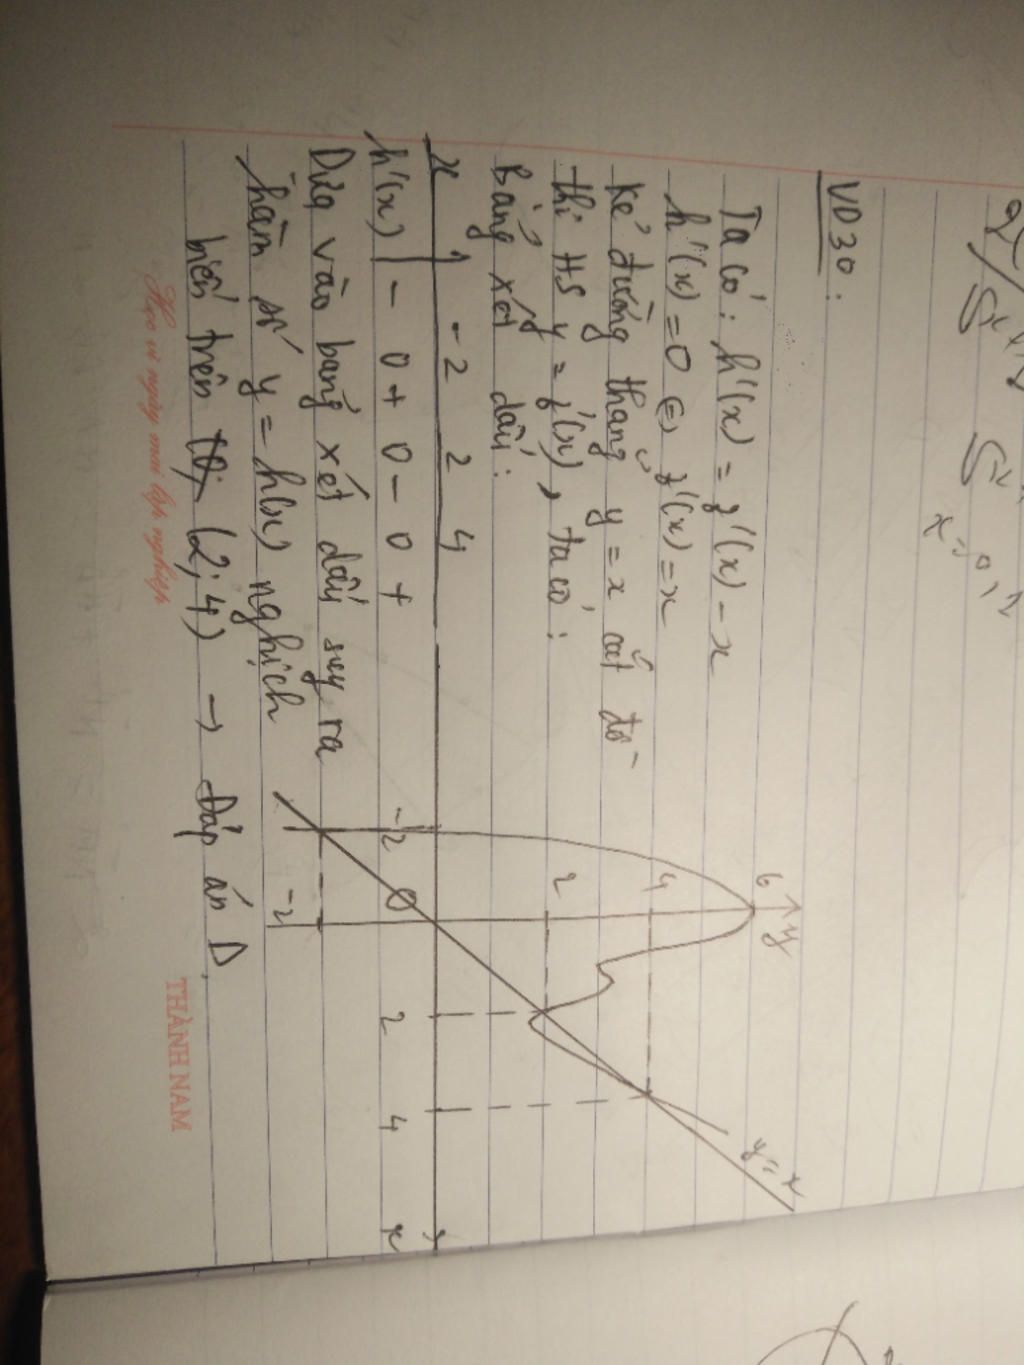 VD30:
Ta có: h'(x) = f'(x) - x
h'(x) = 0 (=) f'(x) = x
Kẻ đường thẳng y = x cắt đồ
thị HS y = f'(x), ta có:
Bảng xét dấu:
x -2 2 4
h'(x) - 0 + 0 - 0 +
Dựa vào bảng xét dấu suy ra
hàm số y = h(x) nghịch
biến trên (2; 4) → Đáp án D.
y
6
4
2
-2 0 2 4 x
-2
y = x
Học vì ngày mai lập nghiệp
THÀNH NAM